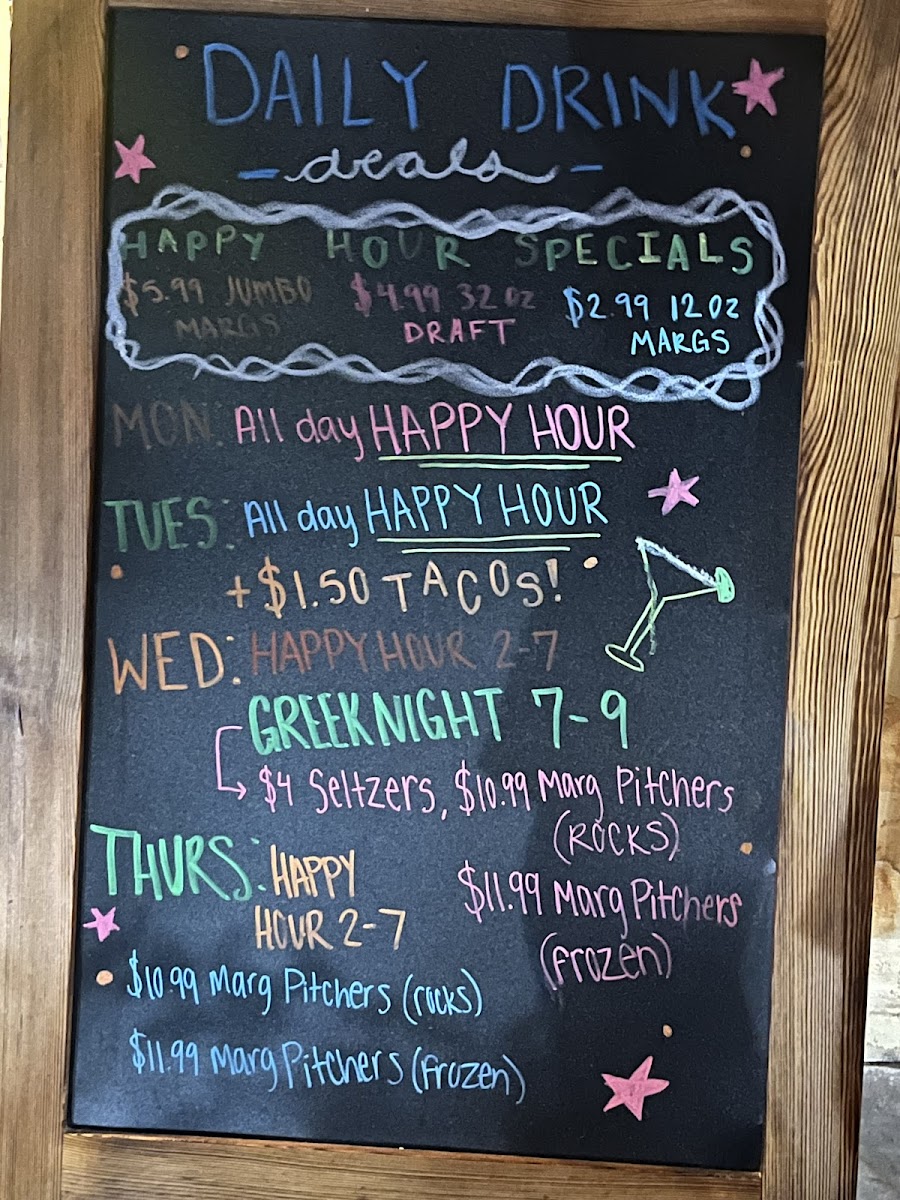 DAILY DRINK
- deals -
HAPPY HOUR SPECIALS
$5.99 JUMBO MARGS
$4.99 32 oz DRAFT
$2.99 12 oz MARGS
MON: All day HAPPY HOUR
TUES: All day HAPPY HOUR
+ $1.50 TACOS!
WED: HAPPY HOUR 2-7
GREEK NIGHT 7-9
→ $4 Seltzers, $10.99 Marg Pitchers
(ROCKS)
$11.99 Marg Pitchers
(frozen)
THURS: HAPPY
HOUR 2-7
$10.99 Marg Pitchers (rocks)
$11.99 Marg Pitchers (frozen)